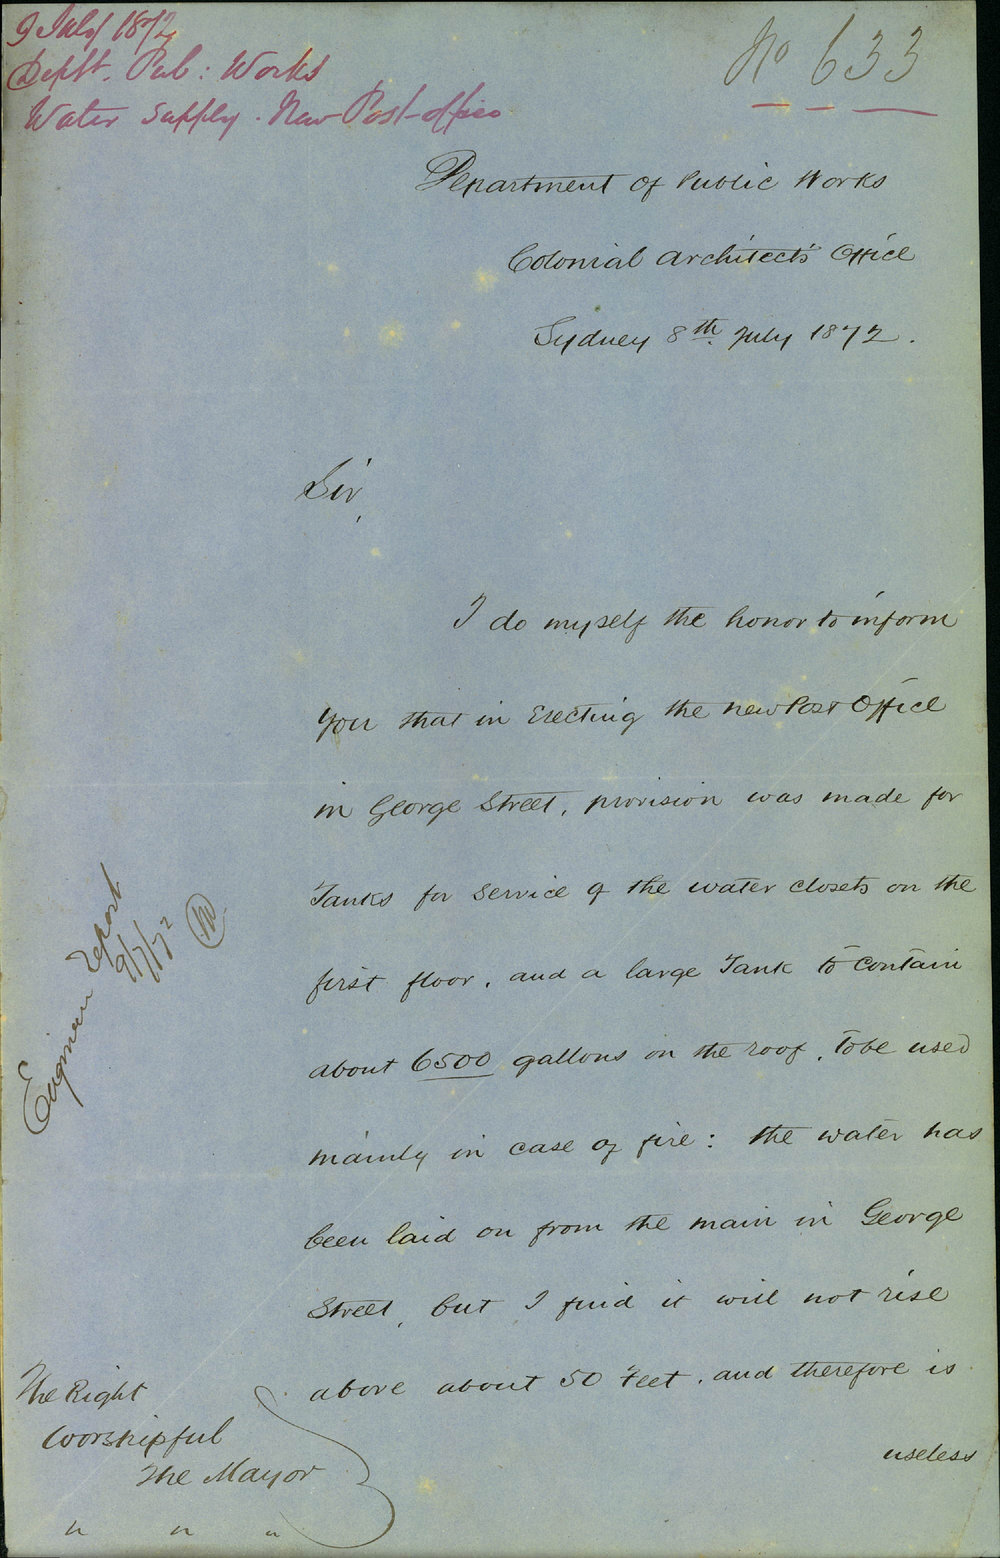 9 July 1872
Deptt. Pub: Works
Water Supply. New Post-office
No 633
Department of Public Works
Colonial Architect's Office
Sydney 8th July 1872.
Sir,
I do myself the honor to inform
you that in Erecting the new Post Office
in George Street, provision was made for
Tanks for service of the water closets on the
first floor, and a large Tank to contain
about 6500 gallons on the roof, to be used
mainly in case of fire: the water has
been laid on from the main in George
Street, but I find it will not rise
above about 50 feet, and therefore is
useless
Engineer report
9/7/72
The Right
Worshipful
The Mayor
" " "